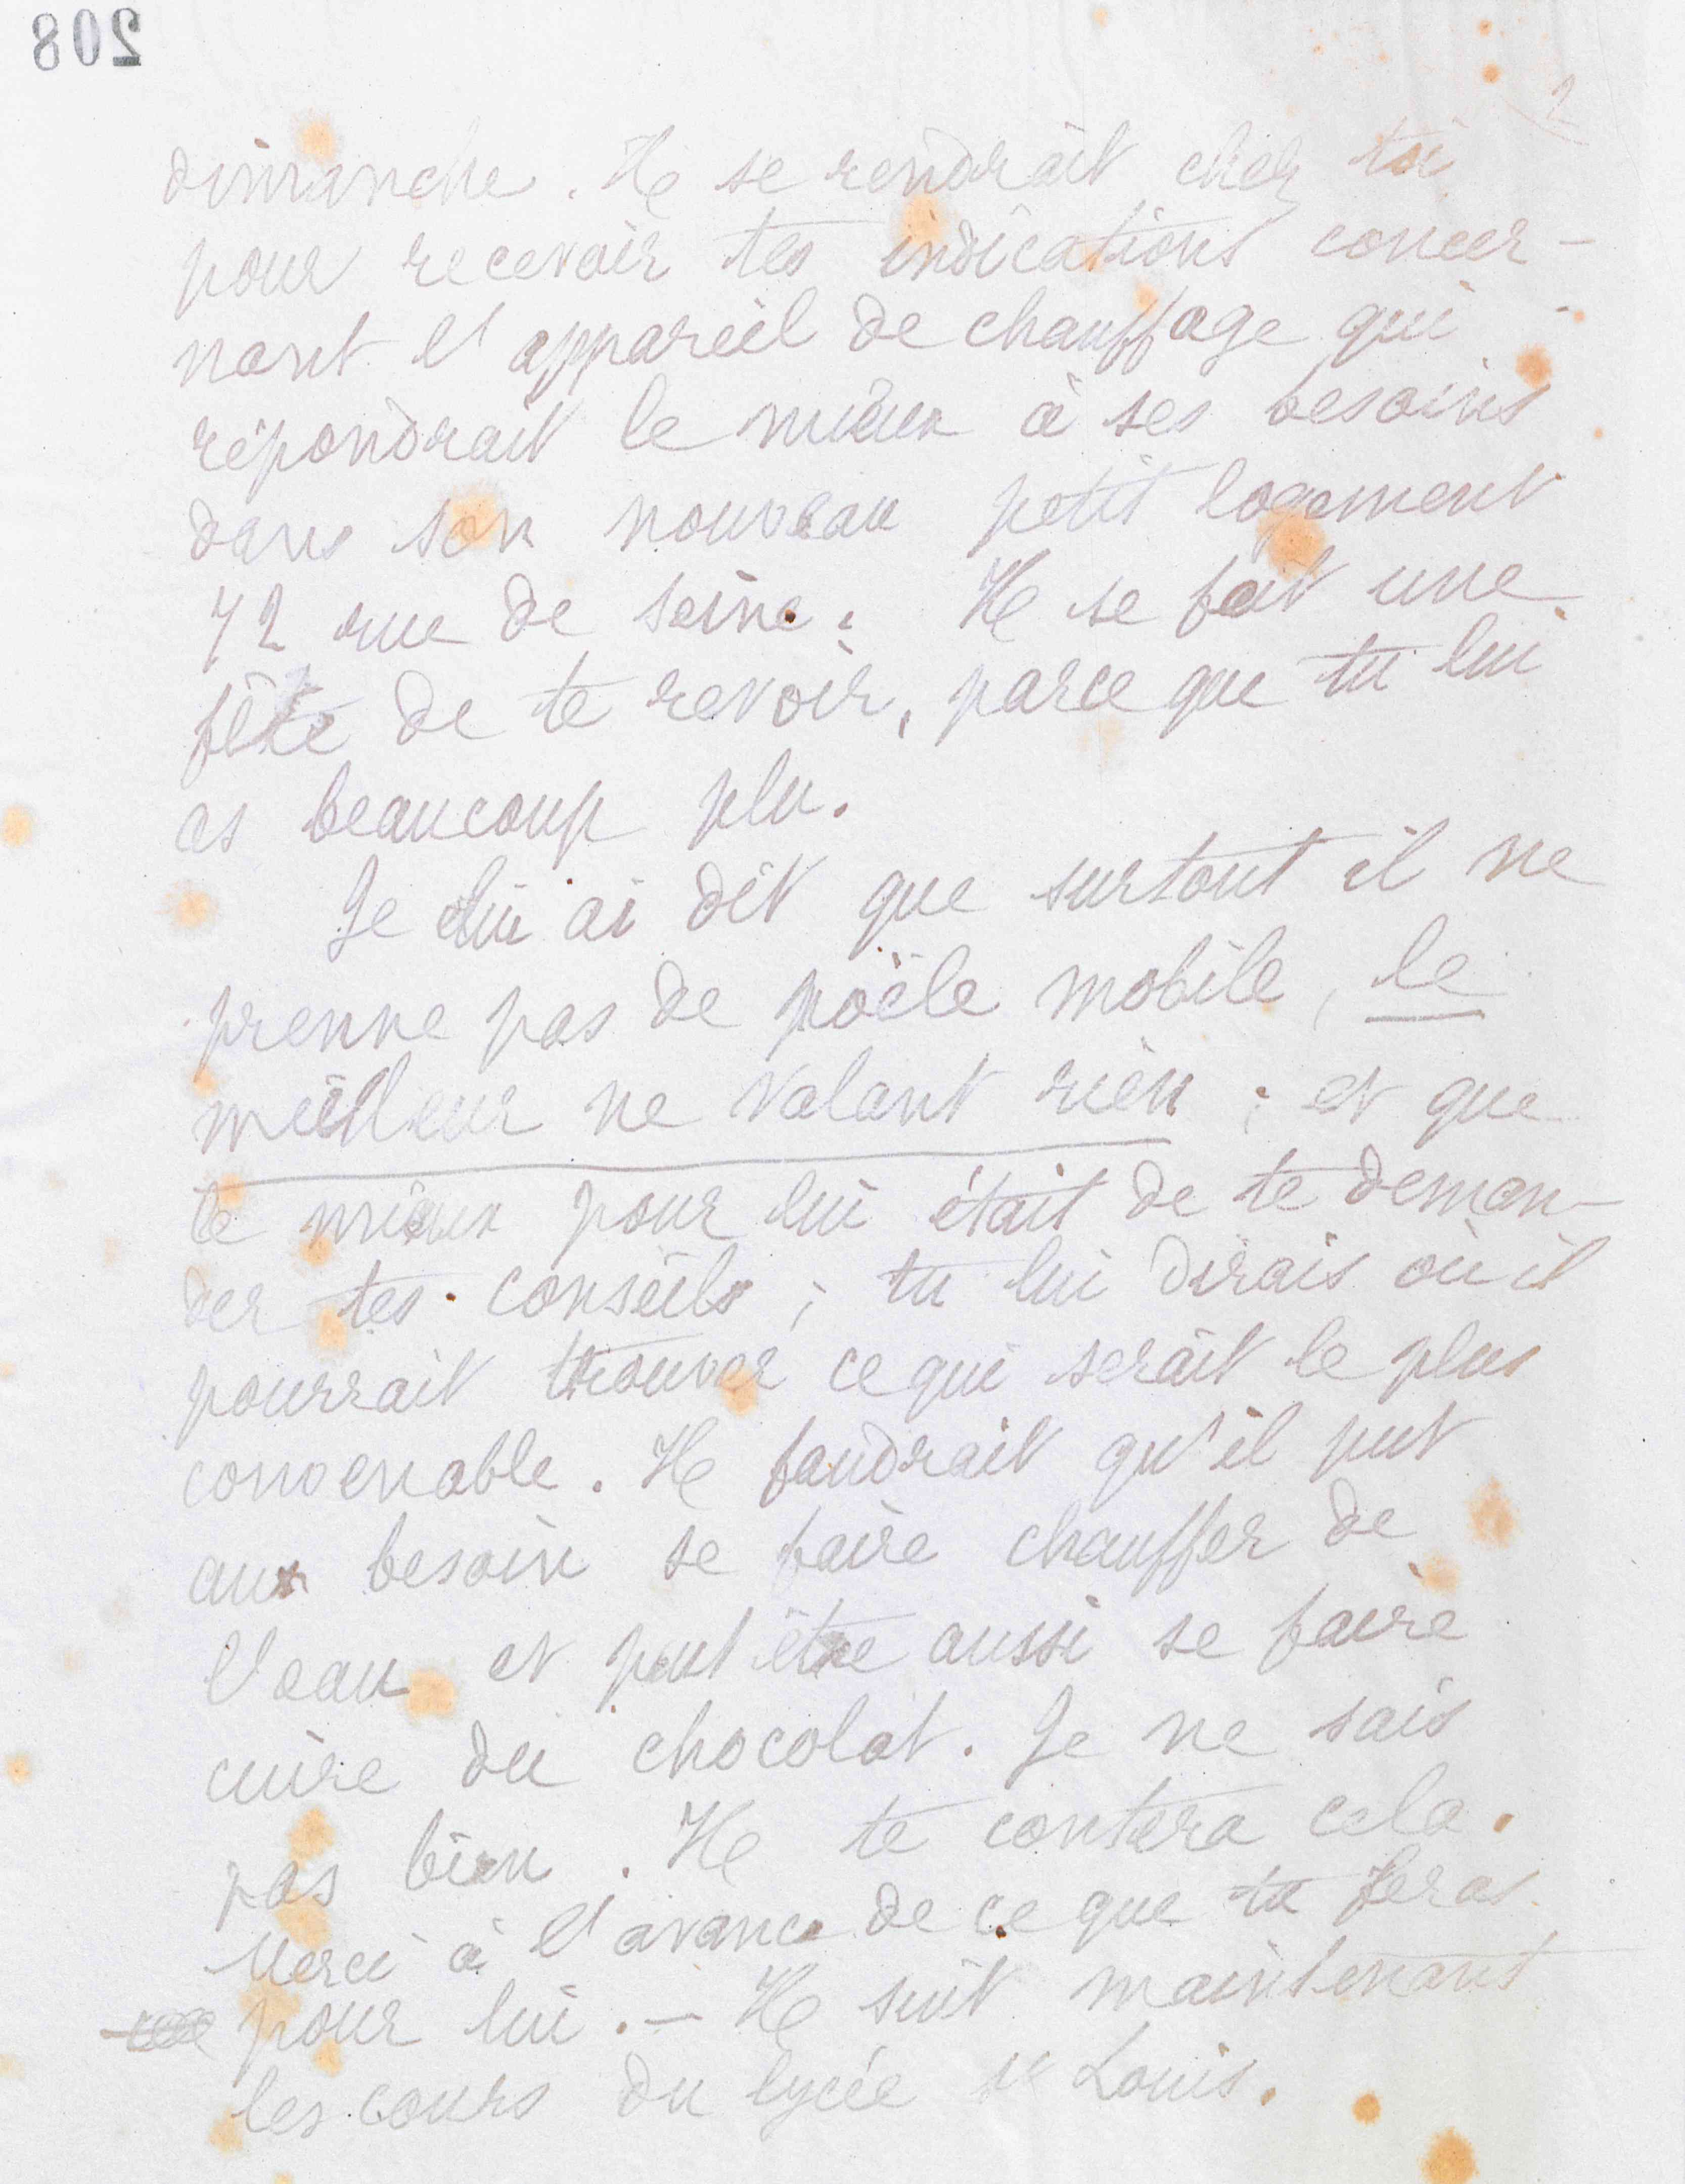 208
2
dimanche. Il se rendrait chez toi
pour recevoir tes indications concer-
nant l'appareil de chauffage qui
répondrait le mieux à ses besoins
dans son nouveau petit logement
72 rue de Seine. Il se fait une
fête de te revoir, parce que tu lui
as beaucoup plu.
Je lui ai dit que surtout il ne
prenne pas de poële mobile, le
meilleur ne valant rien ; et que
le mieux pour lui était de te deman-
der tes conseils ; tu lui dirais où il
pourrait trouver ce qui serait le plus
convenable. Il faudrait qu'il put
au besoin se faire chauffer de
l'eau et peut être aussi se faire
cuire du chocolat. Je ne sais
pas bien. Il te contera cela.
Merci à l'avance de ce que tu feras
pour lui. — Il suit maintenant
les cours du lycée St Louis.